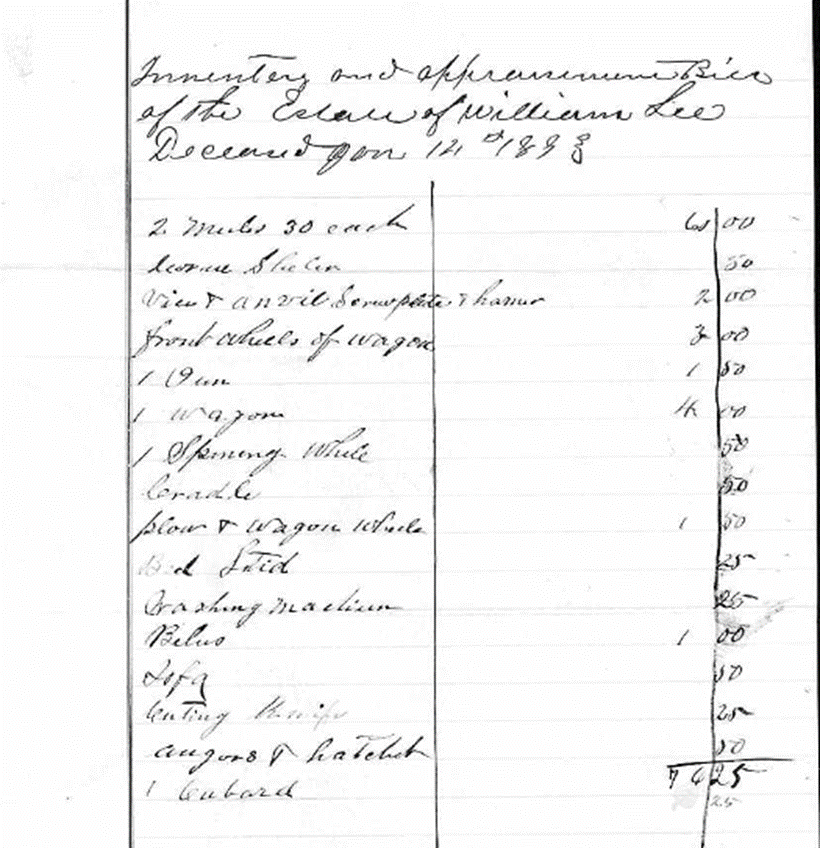 Inventory and appraisement Bill
of the Estate of William Lee
Deceased Jan 14 1893
2 Mules 30 each 60 00
50
Vice & anvil Screwplate & hamer 2 00
front wheels of wagon 3 00
1 Gun 1 50
1 Wagon 4 00
1 Spining While 50
Cradle 50
plow & wagon Whels 1 50
Bed Stid 25
Washing Machien 25
Belus 1 00
Sofa 50
Cuting Knife 25
augors & hatchet 50
76 25
1 Cubard 25